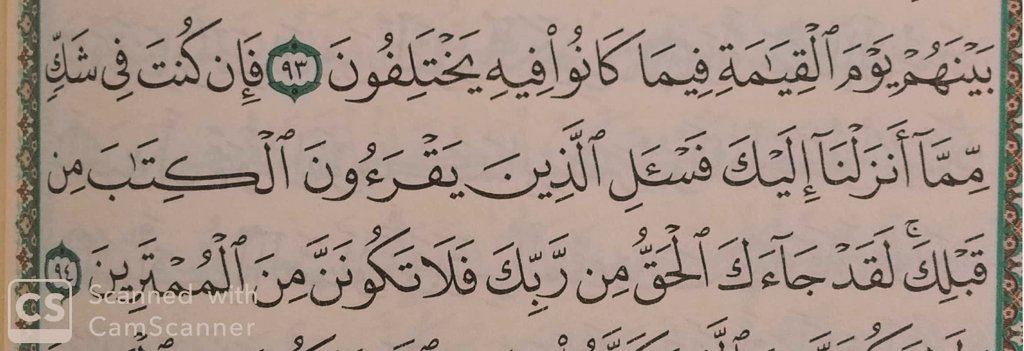 بَيْنَهُمْ يَوْمَ ٱلْقِيَٰمَةِ فِيمَا كَانُوا۟ فِيهِ يَخْتَلِفُونَ ٩٣ فَإِن كُنتَ فِى شَكٍّ
مِّمَّآ أَنزَلْنَآ إِلَيْكَ فَسْـَٔلِ ٱلَّذِينَ يَقْرَءُونَ ٱلْكِتَٰبَ مِن
قَبْلِكَ ۚ لَقَدْ جَآءَكَ ٱلْحَقُّ مِن رَّبِّكَ فَلَا تَكُونَنَّ مِنَ ٱلْمُمْتَرِينَ ٩٤
CS Scanned with
CamScanner